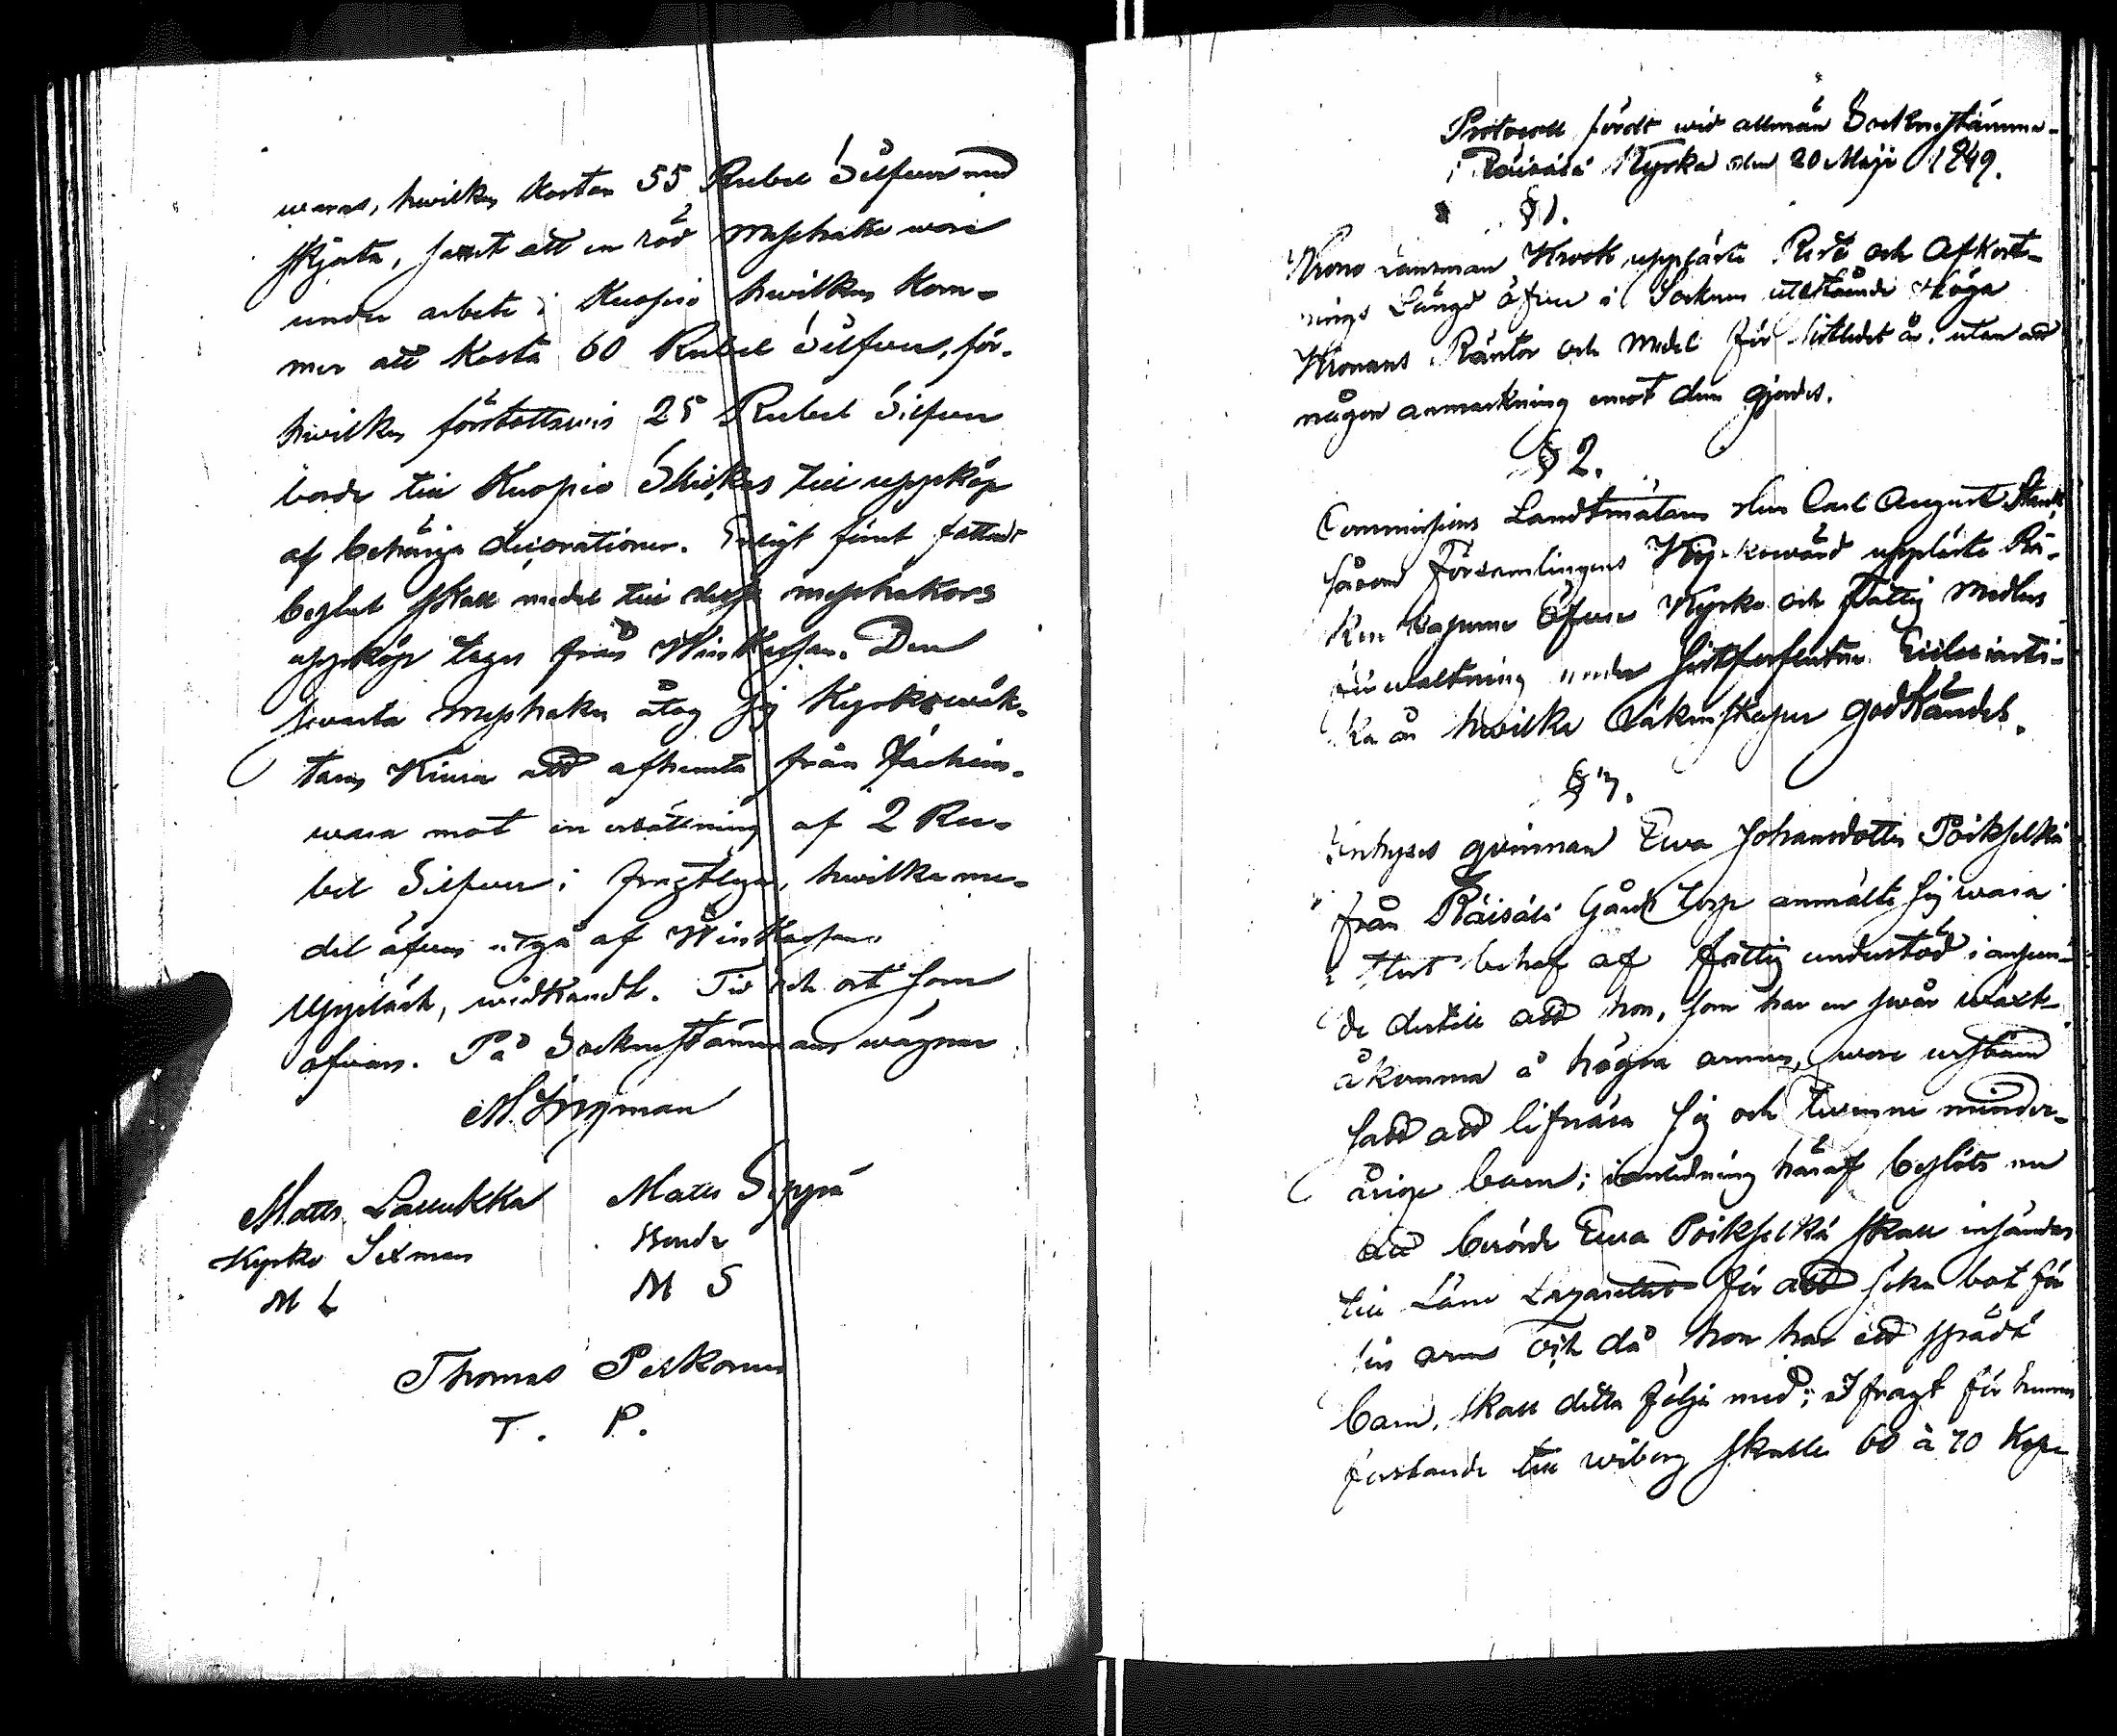 waras, hvilken kostar 55 Rubel Silfver med
skjorta, samt att en röd messhake wore
under arbete i Kuopio hvilken kom-
mer att kosta 60 Rubel Silfver, för
hvilken förskottsvis 25 Rubel Silfver
borde till Kuopio skickas till uppköp
af behöriga decorationer. Enligt förut fattadt
beslut skall medel till dessa messhakars
uppköp tagas från WinKassan. Den
svarta messhaken åtog sig Kyrkowäk-
taren Kiura att afhemta från Jäkim-
wara mot en ersättning af 2 Ru-
bel Silfver i fragtlega, hvilka me-
del äfven utgå af WinKassan.
Uppläst, widkändt. Tid och ort som
ofvan. På Sockenstämmans wägnar

Matts Laukka Matts Seppä
Kyrko Sexman Bonde
M L M S
Thomas Peskonen
T. P.
Protocoll fördt wid allmän Sockenstämma
i Räisälä Kyrka den 20 Maji 1849.
§ 1.
Krono Länsman Krook uppläste Rest och Afkort-
nings Längd öfver i Socknen utestående Höga
Kronans Räntor och Medel för sistledet år, utan att
någon anmärkning emot den gjordes.
§ 2.
Commissions Landtmätaren Herr Carl August
såsom Församlingens Kyrkowärd uppläste Rä-
kenskaperne öfver Kyrko och Fattig Medlens
förwaltning under sistförflutne Ecclesiasti-
ka år hvilka Räkenskaper godkändes.
§ 3.
Inhyses qvinnan Ewa Johansdotter Poikselkä
från Räisälä Gårds Torp anmälte sig wara
i stort behof af fattig understöd i anseen-
de dertill att hon, som har en swår wärk-
åkomma å högra armen, wore urståndsatt
att lifnära sig och twenne minder-
årige barn; i anledning häraf beslöts nu
att berörde Ewa Poikselkä skall insändas
till Läns Lazarettet för att söka bot för
sin arm och då hon har ett spädt
barn, skall detta följa med; i fragt för hennes
forslande till Wiborg skulle 60 à 70 Kop.